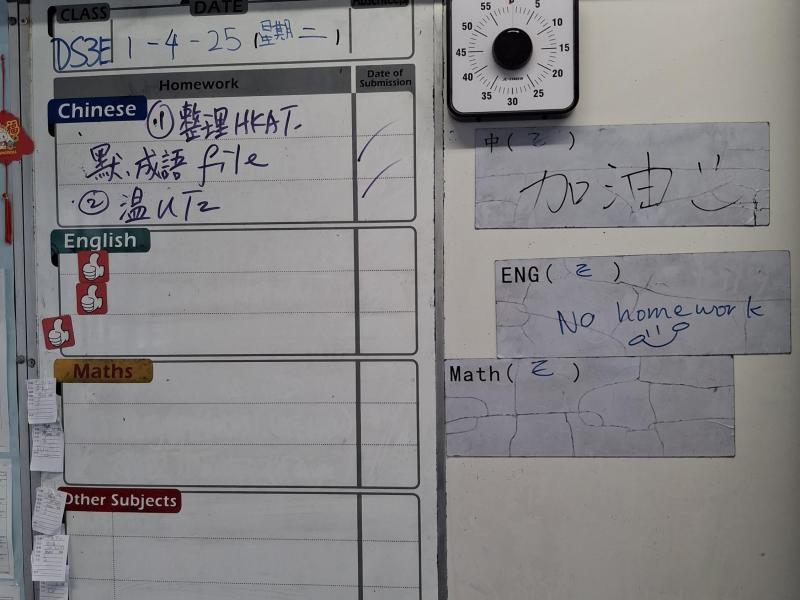 CLASS DATE
DS3E 1-4-25 (星期二)
Homework Date of Submission
Chinese ① 整理 HKAT.
默、成語 file
② 温 UT2
English
Maths
Other Subjects
55 5
50 10
45 15
40 20
35 30 25
中( 乙 )
加油
ENG( 乙 )
No homework
Math( 乙 )